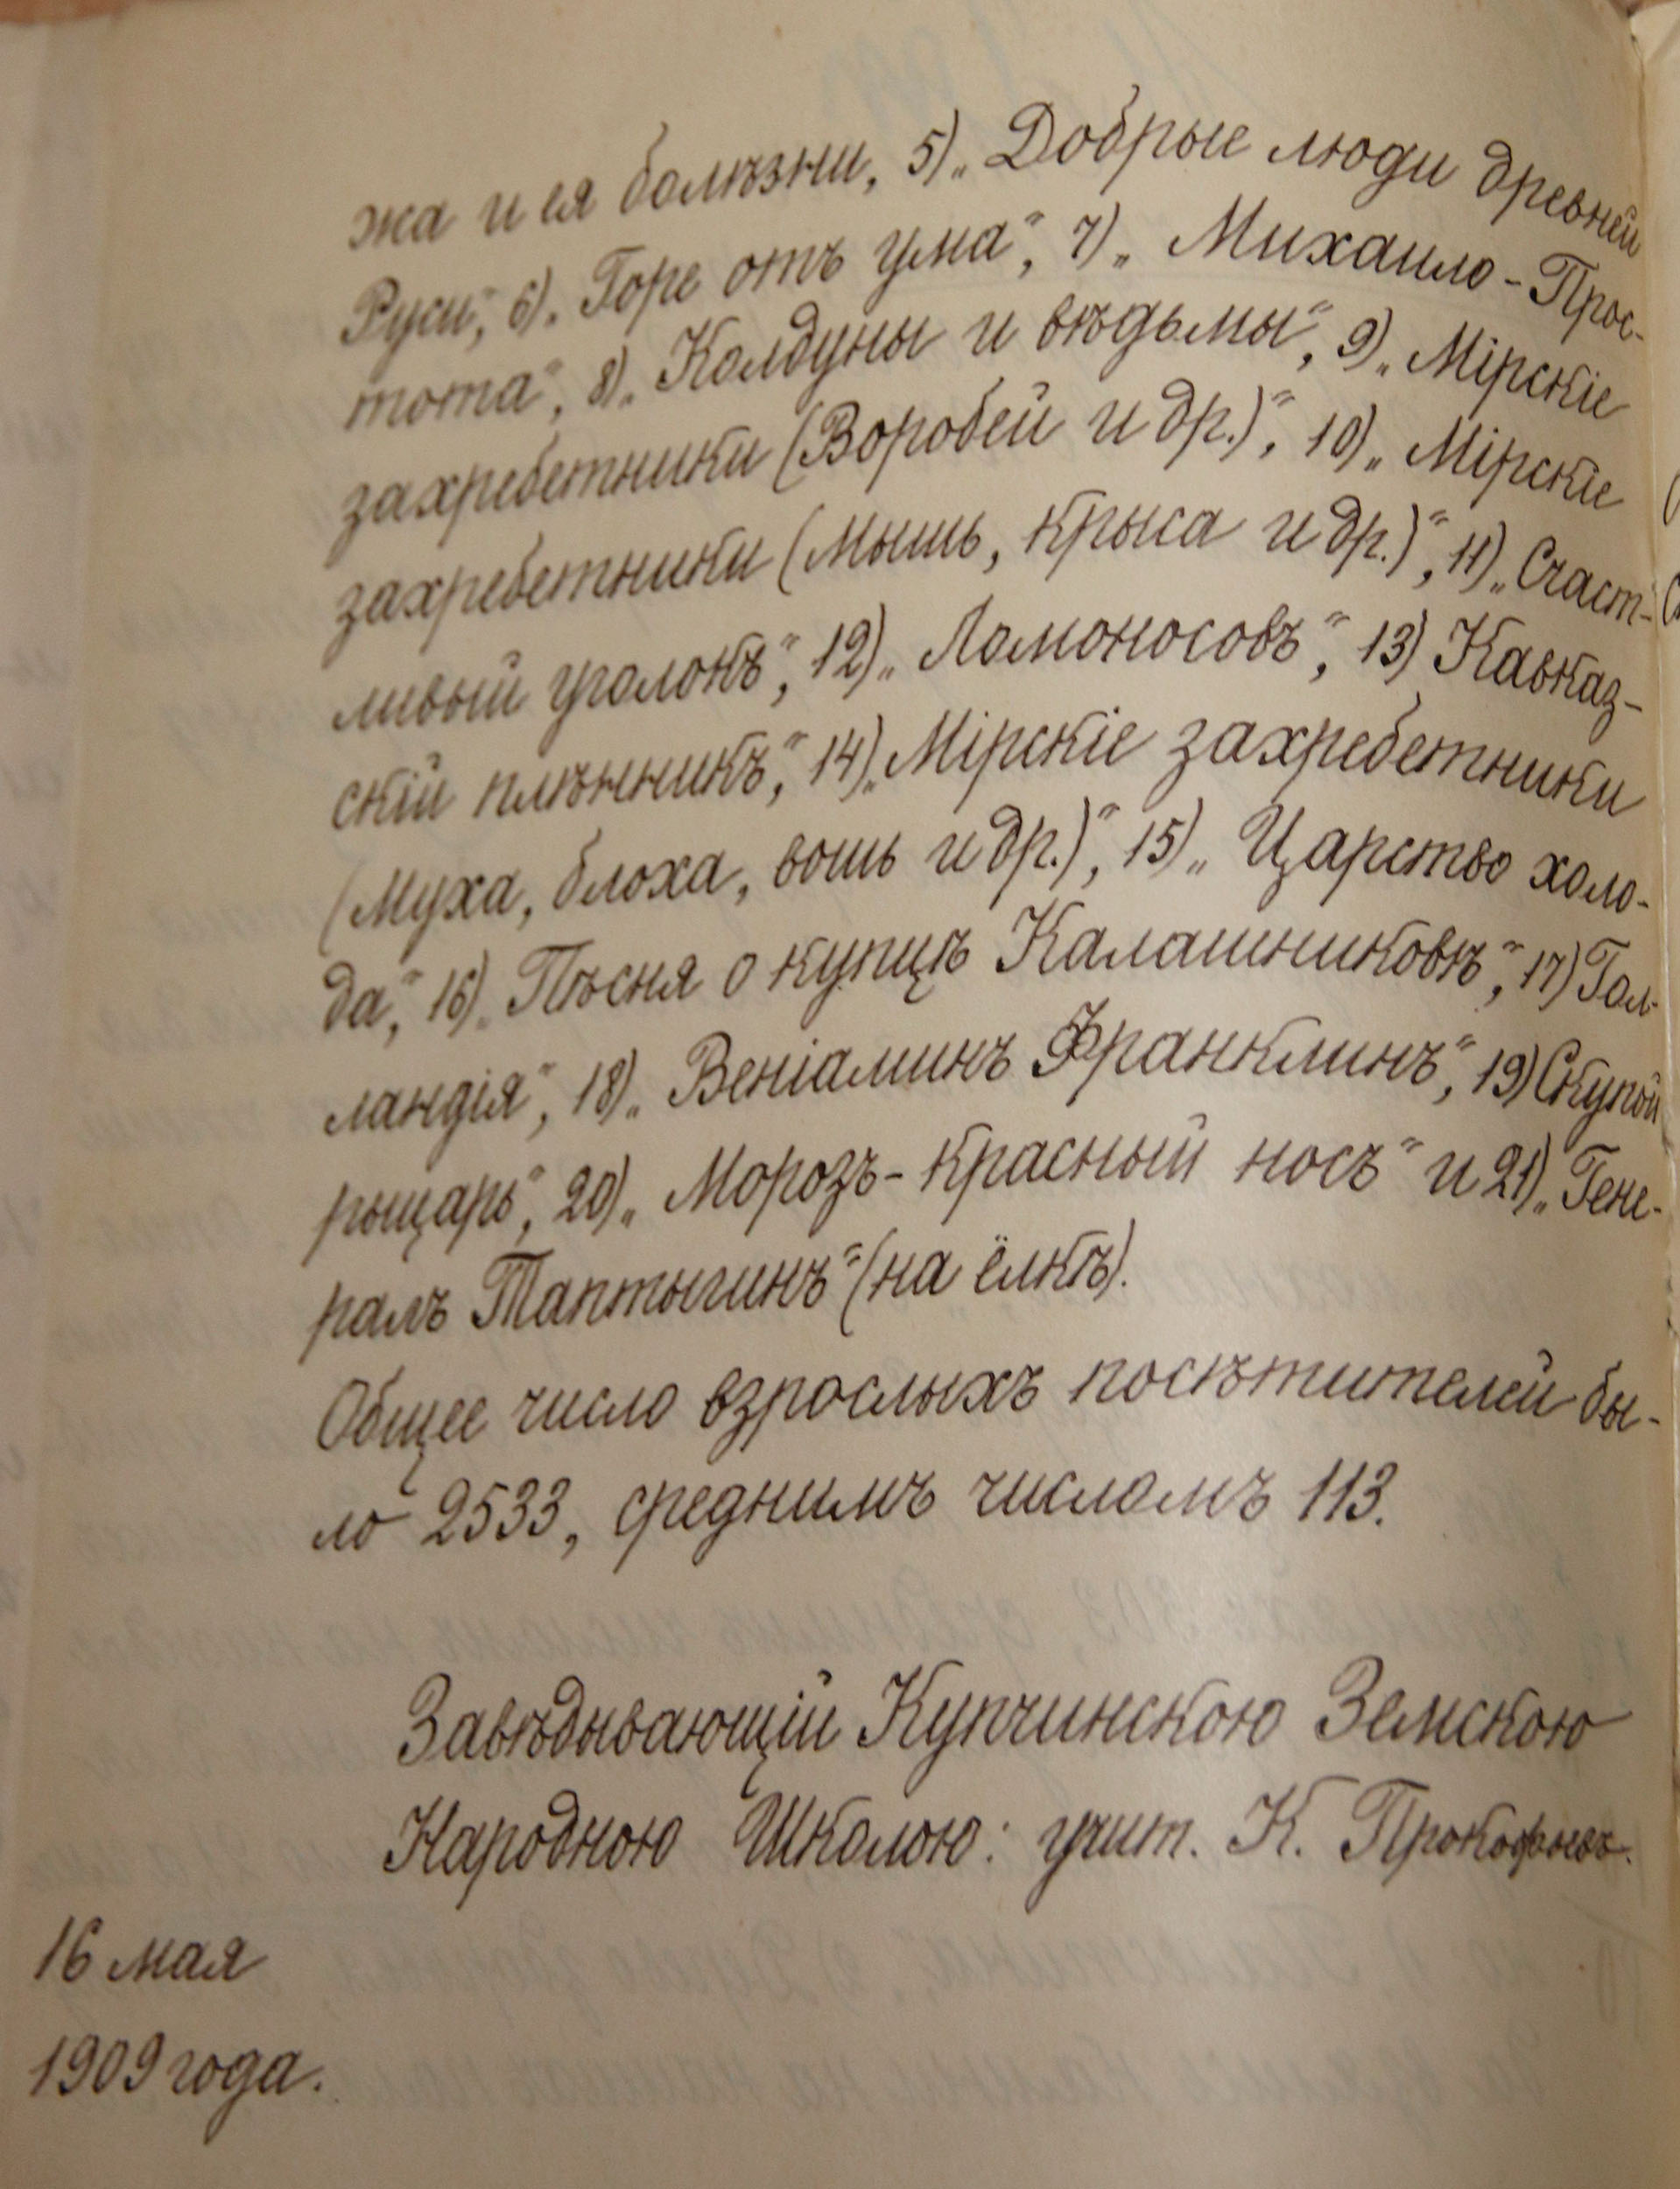 жа и ея болѣзни, 5) „Добрые люди древней
Руси“, 6) „Горе отъ ума“, 7) „Михаило-Прос-
тота“, 8) „Колдуны и вѣдьмы“, 9) „Мірскіе
захребетники (Воробей и др.)“, 10) „Мірскіе
захребетники (Мышь, крыса и др.)“, 11) „Счаст-
ливый уголокъ“, 12) „Ломоносовъ“, 13) Кавказ-
скій плѣнникъ“, 14) „Мірскіе захребетники
(Муха, блоха, вошь и др.)“, 15) „Царство холо-
да“, 16) „Пѣсня о купцѣ Калашниковѣ“, 17) Гол-
ландія“, 18) „Веніаминъ Франклинъ“, 19) Скупой
рыцарь“, 20) „Морозъ-красный носъ“ и 21) „Гене-
ралъ Таптыгинъ“ (на ёлкѣ).
Общее число взрослыхъ посѣтителей бы-
ло 2533, среднимъ числомъ 113.
Завѣдывающій Купчинскою Земскою
Народною Школою: учит. К. Прокофьевъ.
16 мая
1909 года.